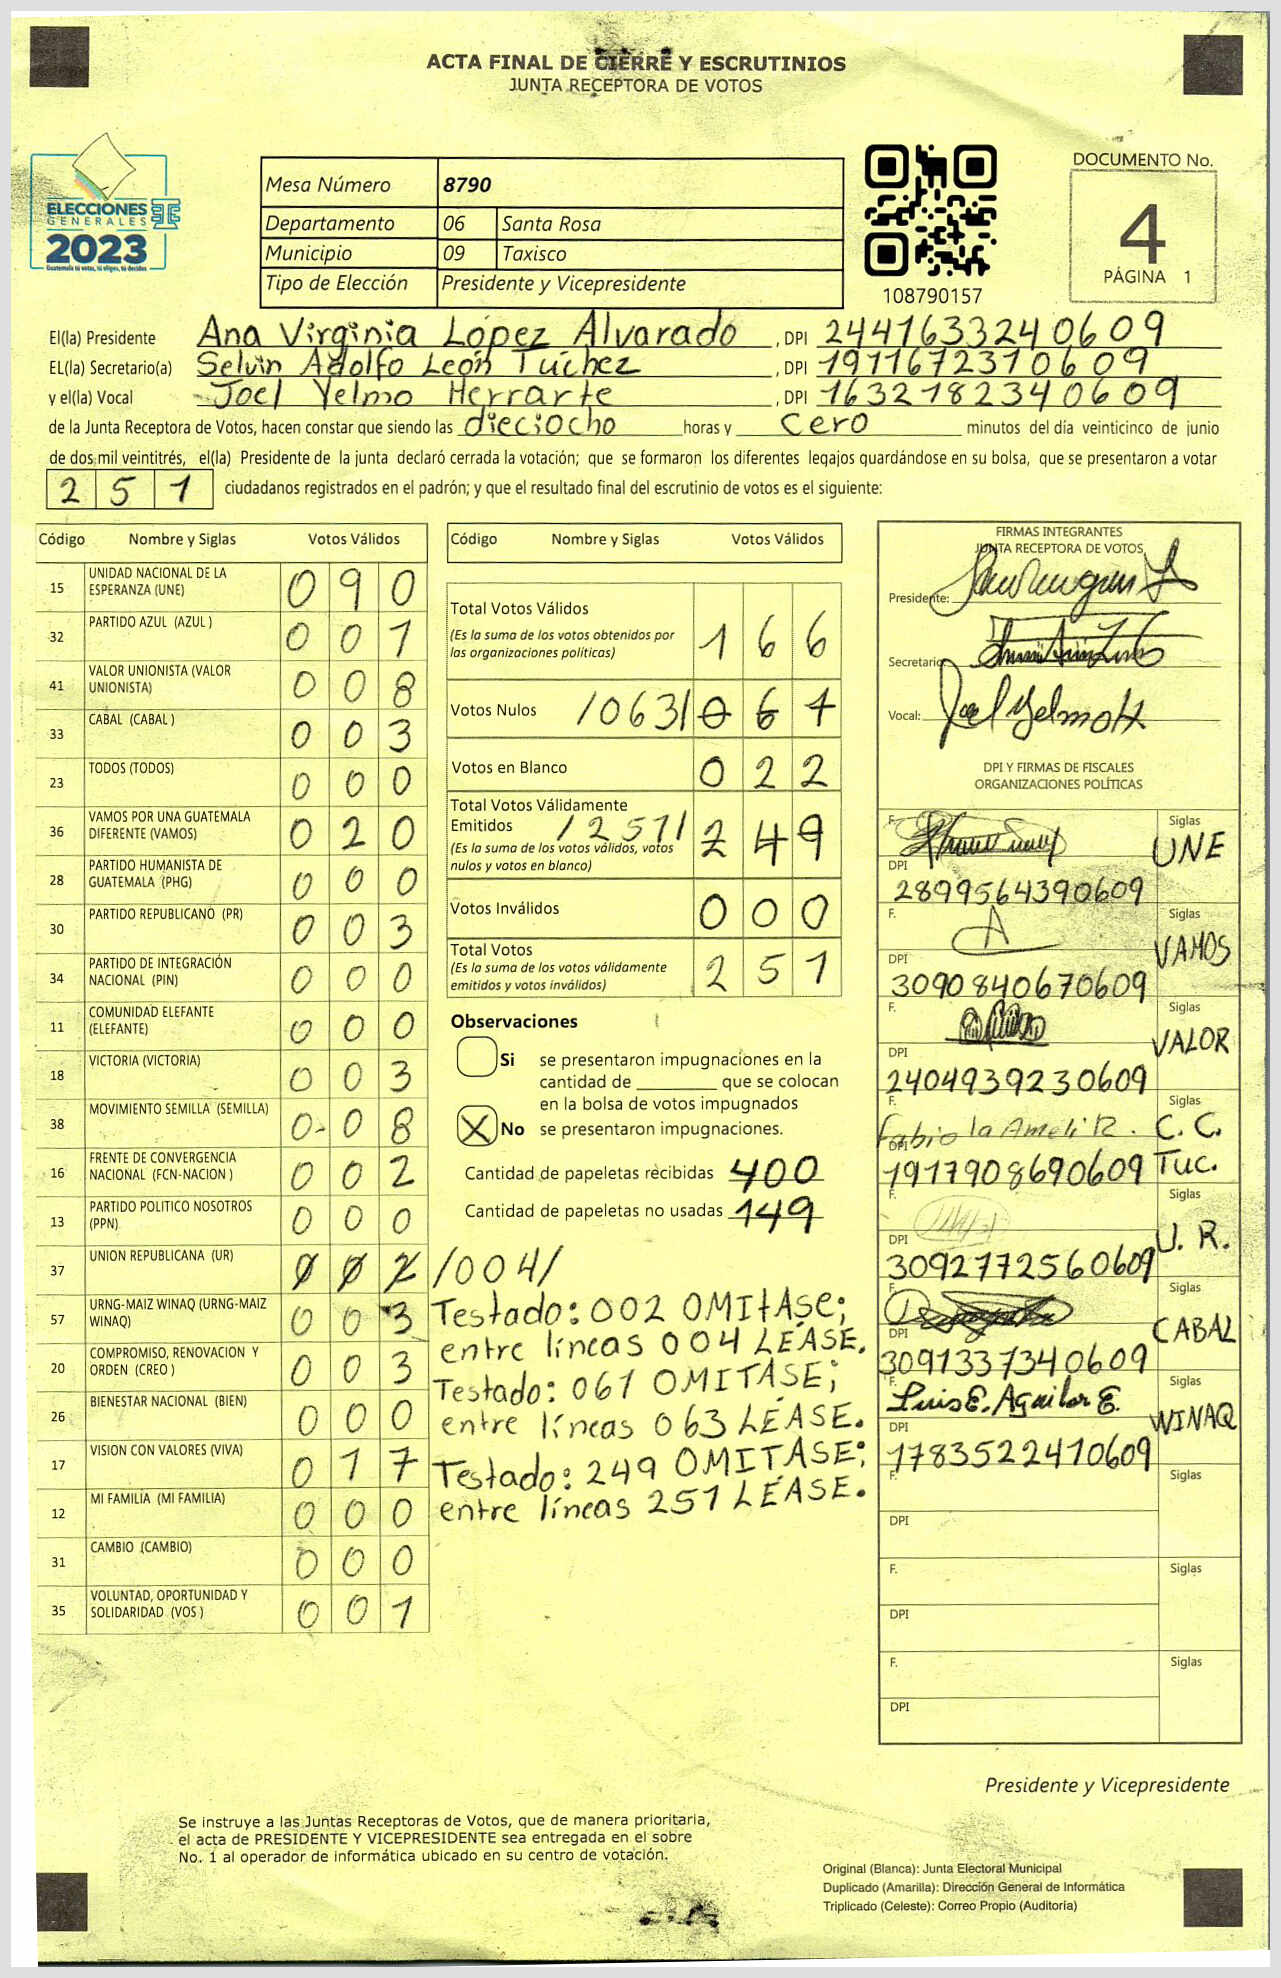 ACTA FINAL DE CIERRE Y ESCRUTINIOS
JUNTA RECEPTORA DE VOTOS
ELECCIONES
GENERALES
2023
Guatemala tú votas, tú eliges, tú decides
Mesa Número 8790
Departamento 06 Santa Rosa
Municipio 09 Taxisco
Tipo de Elección Presidente y Vicepresidente
108790157
DOCUMENTO No.
4
PÁGINA 1
El(la) Presidente Ana Virginia López Alvarado, DPI 2441633240609
EL(la) Secretario(a) Selvin Adolfo León Túchez, DPI 1911672310609
y el(la) Vocal Joel Yelmo Herrarte, DPI 1632182340609
de la Junta Receptora de Votos, hacen constar que siendo las dieciocho horas y Cero minutos del día veinticinco de junio
de dos mil veintitrés, el(la) Presidente de la junta declaró cerrada la votación; que se formaron los diferentes legajos guardándose en su bolsa, que se presentaron a votar
251 ciudadanos registrados en el padrón; y que el resultado final del escrutinio de votos es el siguiente:
Código Nombre y Siglas Votos Válidos
15 UNIDAD NACIONAL DE LA ESPERANZA (UNE) 090
32 PARTIDO AZUL (AZUL ) 001
41 VALOR UNIONISTA (VALOR UNIONISTA) 008
33 CABAL (CABAL ) 003
23 TODOS (TODOS) 000
36 VAMOS POR UNA GUATEMALA DIFERENTE (VAMOS) 020
28 PARTIDO HUMANISTA DE GUATEMALA (PHG) 000
30 PARTIDO REPUBLICANO (PR) 003
34 PARTIDO DE INTEGRACIÓN NACIONAL (PIN) 000
11 COMUNIDAD ELEFANTE (ELEFANTE) 000
18 VICTORIA (VICTORIA) 003
38 MOVIMIENTO SEMILLA (SEMILLA) 008
16 FRENTE DE CONVERGENCIA NACIONAL (FCN-NACION ) 002
13 PARTIDO POLITICO NOSOTROS (PPN) 000
37 UNION REPUBLICANA (UR) 002 /004/
57 URNG-MAIZ WINAQ (URNG-MAIZ WINAQ) 003
20 COMPROMISO, RENOVACION Y ORDEN (CREO ) 003
26 BIENESTAR NACIONAL (BIEN) 000
17 VISION CON VALORES (VIVA) 017
12 MI FAMILIA (MI FAMILIA) 000
31 CAMBIO (CAMBIO) 000
35 VOLUNTAD, OPORTUNIDAD Y SOLIDARIDAD (VOS ) 001
Código Nombre y Siglas Votos Válidos
Total Votos Válidos 166
(Es la suma de los votos obtenidos por
las organizaciones políticas)
Votos Nulos /063/ 061
Votos en Blanco 022
Total Votos Válidamente
Emitidos /251/ 249
(Es la suma de los votos válidos, votos
nulos y votos en blanco)
Votos Inválidos 000
Total Votos 251
(Es la suma de los votos válidamente
emitidos y votos inválidos)
Observaciones
Si se presentaron impugnaciones en la
cantidad de ________ que se colocan
en la bolsa de votos impugnados
X No se presentaron impugnaciones.
Cantidad de papeletas recibidas 400
Cantidad de papeletas no usadas 149
Testado: 002 OMITASE;
entre líneas 004 LEASE.
Testado: 061 OMITASE;
entre líneas 063 LEASE.
Testado: 249 OMITASE;
entre líneas 251 LEASE.
FIRMAS INTEGRANTES
JUNTA RECEPTORA DE VOTOS
Presidente:
Secretario:
Vocal: Joel Yelmo H
DPI Y FIRMAS DE FISCALES
ORGANIZACIONES POLÍTICAS
F. Siglas UNE
DPI 2899564390609
F. Siglas VAMOS
DPI 3090840670609
F. Siglas VALOR
DPI 2404939230609
F. Fabiola Siglas C. C.
DPI 1917908690609 Tuc.
F. Siglas U. R.
DPI 3092772560609
F. Siglas CABAL
DPI 3091337340609
F. Luis E. Aguilar E. Siglas WINAQ
DPI 1783522410609
F. Siglas
DPI
F. Siglas
DPI
F. Siglas
DPI
Presidente y Vicepresidente
Se instruye a las Juntas Receptoras de Votos, que de manera prioritaria,
el acta de PRESIDENTE Y VICEPRESIDENTE sea entregada en el sobre
No. 1 al operador de informática ubicado en su centro de votación.
Original (Blanca): Junta Electoral Municipal
Duplicado (Amarilla): Dirección General de Informática
Triplicado (Celeste): Correo Propio (Auditoría)